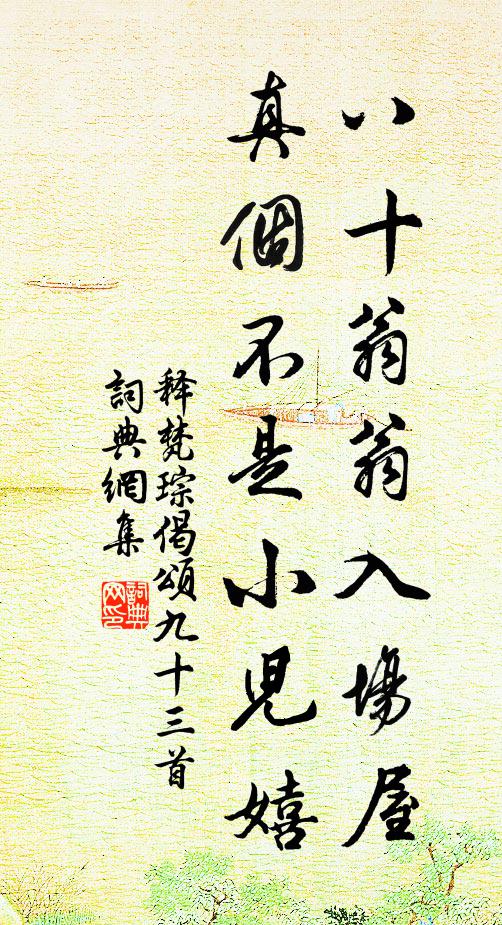 八十翁翁入場屋
真個不是小児嬉
释梵琮偈頌九十三首
詞典網集
詞典
网印